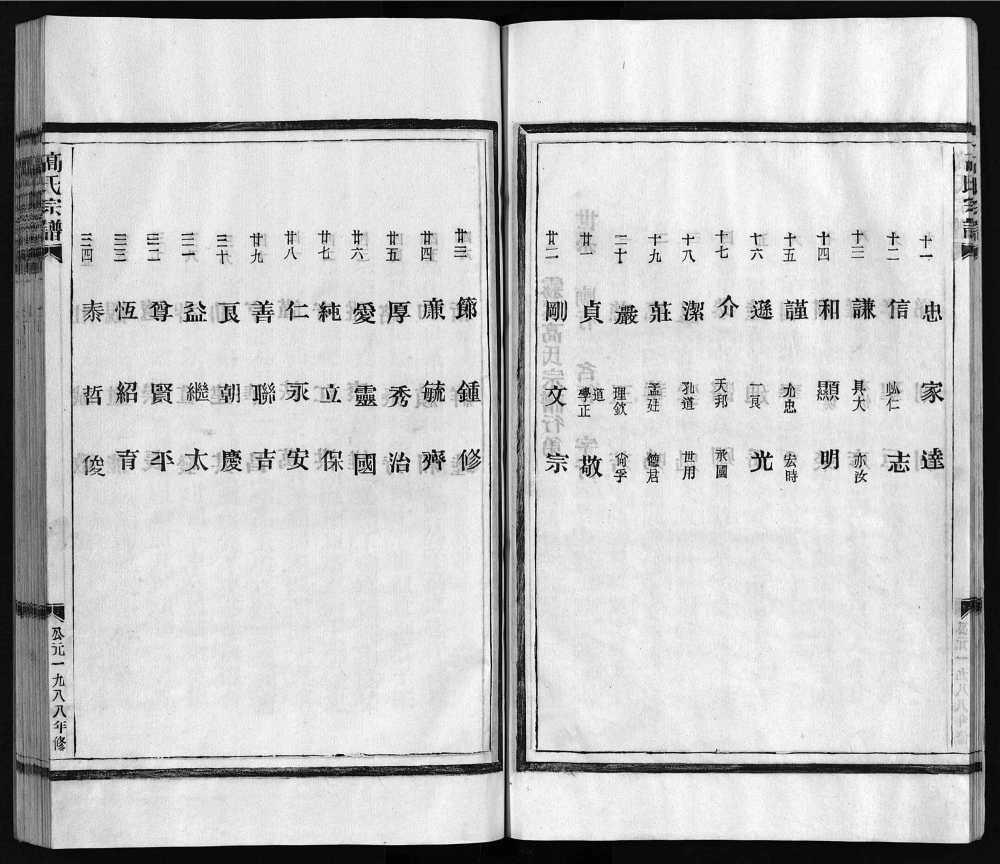 十一 忠 家 達
十二 信 必仁 志
十三 謙 具大 亦汝
十四 和 顯 明
十五 謹 尤忠 宏時
十六 遜 一良 光
十七 介 天邦 承國
十八 潔 孔道 世用
十九 莊 孟廷 德君
二十 嚴 理欽 尙孚
廿一 貞 道學正 敬
廿二 剛 文 宗
廿三 節 鍾 修
廿四 亷 毓 齊
廿五 厚 秀 治
廿六 愛 靈 國
廿七 純 立 保
廿八 仁 永 安
廿九 善 聯 吉
三十 良 朝 慶
三一 益 繼 太
三二 尊 賢 平
三三 恆 紹 育
三四 泰 哲 俊
高氏宗譜
公元一九八八年修